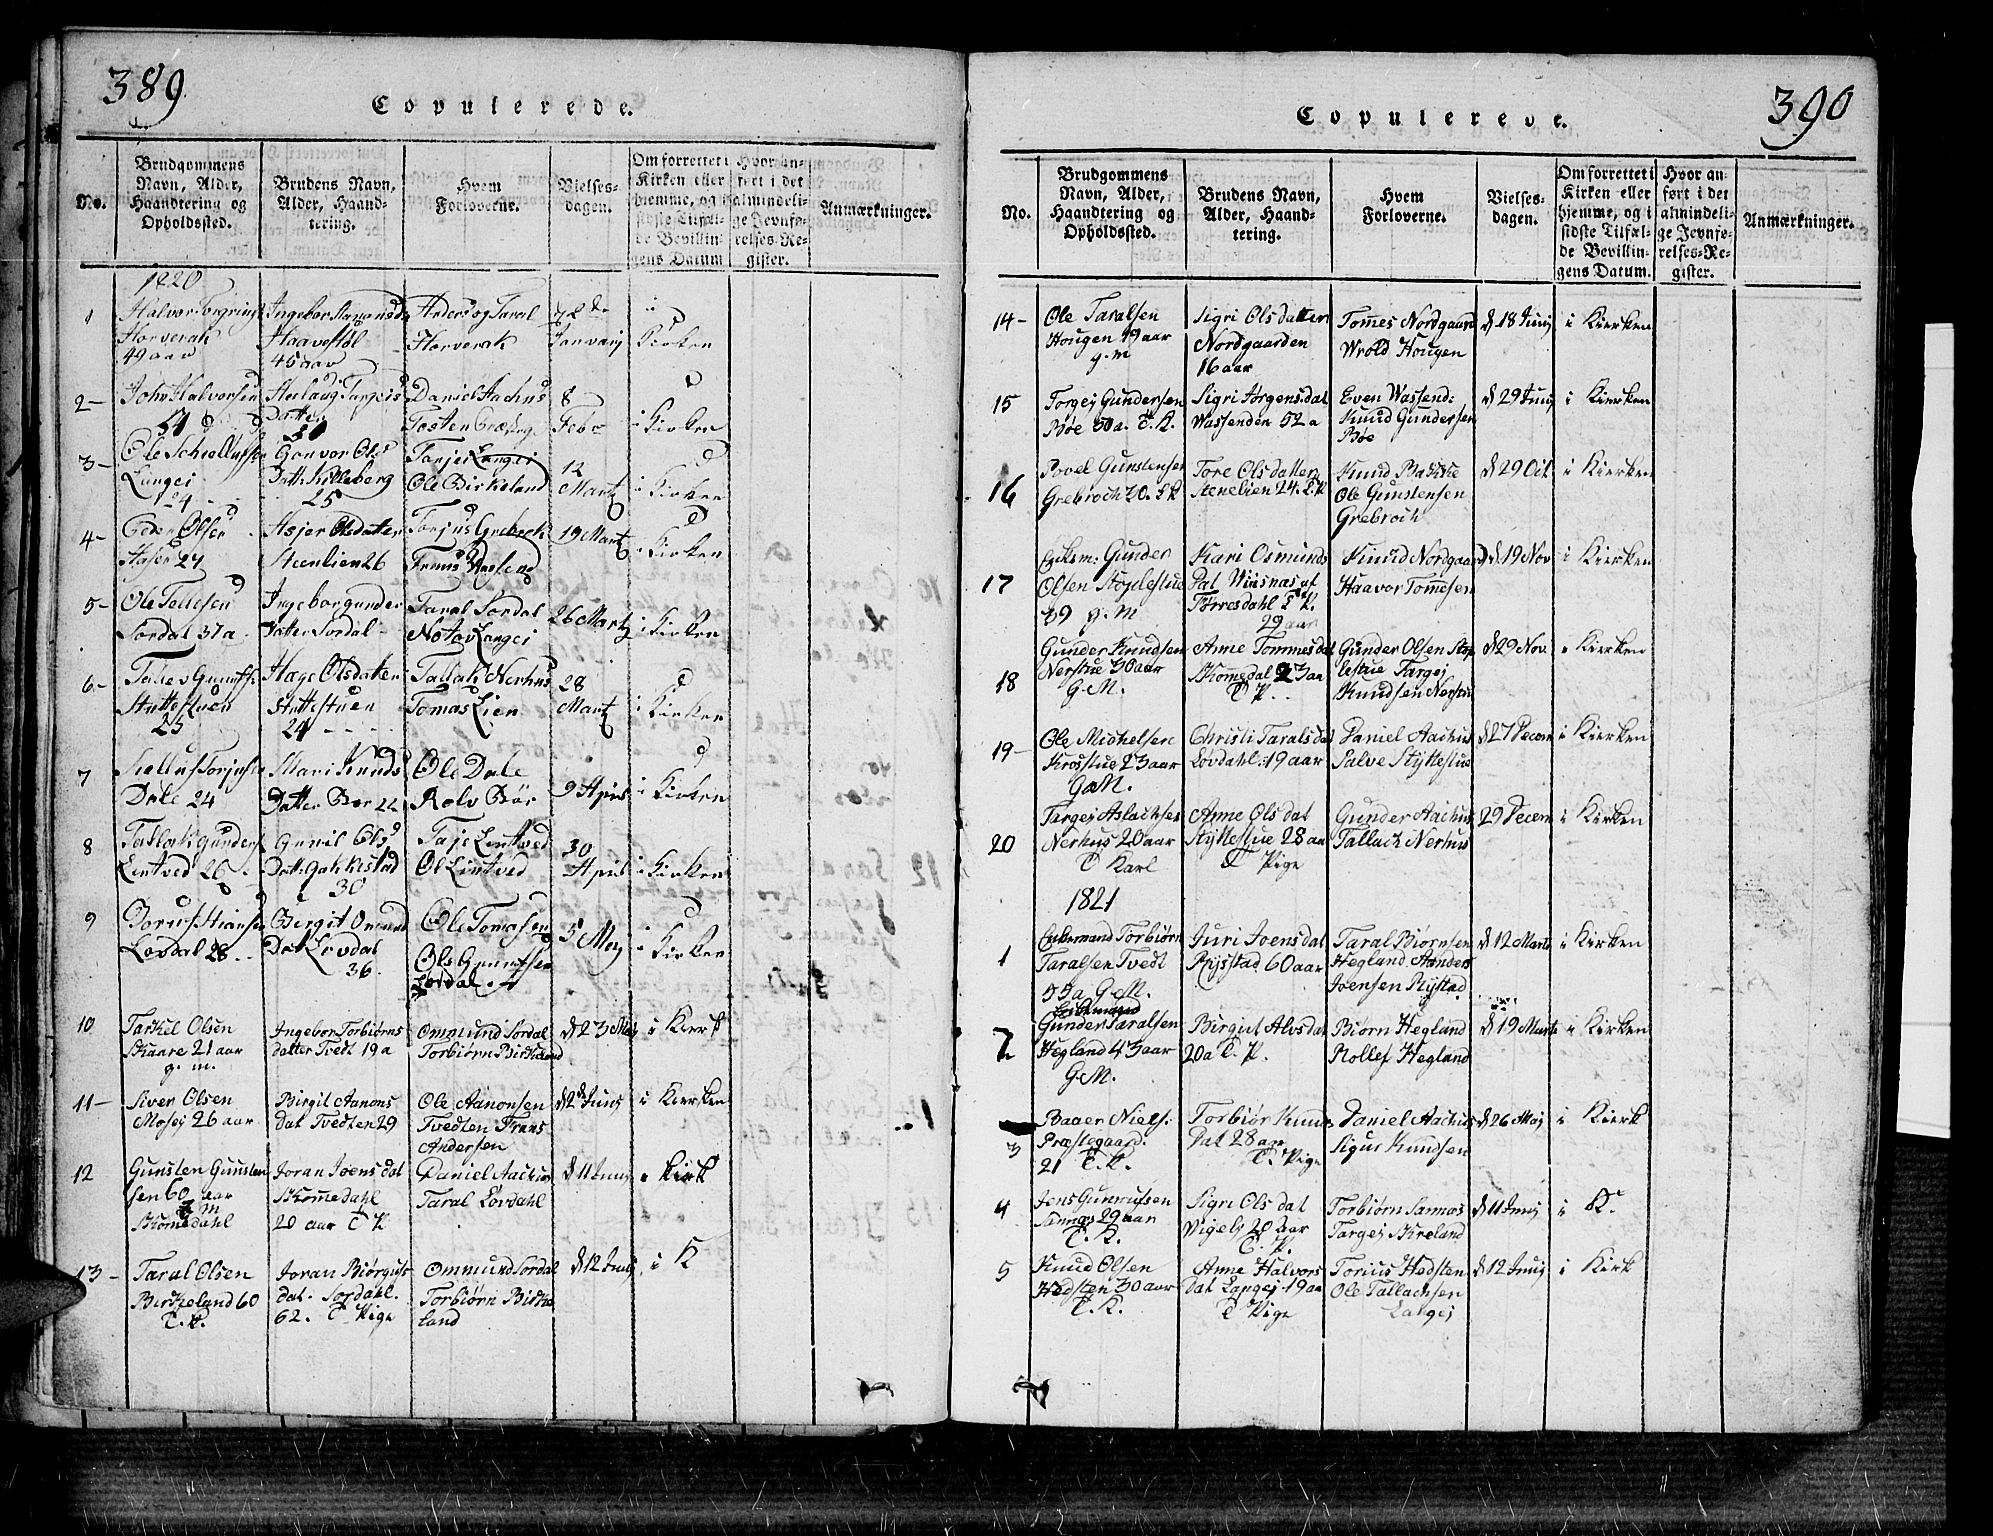 389
Copulerede.
No.
Brudgommens
Navn, Alder,
Haandtering og
Opholdssted.
Brudens Navn,
Alder, Haand-
tering.
Hvem
Forloverne.
Vielses-
dagen.
Om forrettet i
Kirken eller
hjemme, og i
sidste Tilfæl-
de Bevillin-
gens Datum
Hvor an-
ført i det
almindeli-
ge Jevnfø-
relses-Re-
gister.
Anmærkninger.
1820
1
Horverak
49 aar
Haavestøl
45 aar
Anders og Taral
Horverak
Januarj
i
Kirken
2-
John Halvorsen
Datter
Daniel Aachus
8
Febr
i Kirken
3-
Langei
24
Gonvor Ols
Datt. Killeberg
25
Langei
Ole Birkeland
12
Martz
i Kirken
4-
Peder Olsen
27
Asjer Olsdatter
Steenlien 26
Torjus Grebrok
19 Martz
i Kirken
5-
Ole Tellefsen
Sordal 37 a
Ingebor gunder
Datter Sordal
Taral Sordal
Notov Langei
26 Martz
i Kirken
6-
Stuttestuen
25
Hæge Olsdatter
Stuttestuen
24
Tallak Nerhus
Tomas Lien
28
Martz
i Kirken
7
Dale 24
Mari Knuds
Datter Bør 22
Ole Dale
Rolv Bør
9 April
i Kirken
8
Lintved 26
Gunil Ols
30
Taje Lintved
Ol Lintved
30
April
i Kirken
9
Lovdal 28
Bergit Omund
Dat Lovdal
36
Ole Tomasen
Ols Gunufsen
Lovdal
5 Mey
i Kirken
10
Tarkel Olsen
Skaare 21 aar
g. m.
Ingebor Torbiørns
datter Tvedt 19 a
Ommund Sordal
Torbiørn Birkeland
d 23 Mej
i Kierk
11-
Siver Olsen
Mosej 26 aar
Birgit Aanons
dat Tvedten 29
Ole Aanonsen
Tvedten Frans
Andersen
d 2 Junj
i Kiersken
12
Gunsten Gunsten
sen 60 aar
Skomedahl
Joran Joens dat
Skomedahl
20 aar T P
Daniel Aachus
Taral Løvdahl
d 11 Junj
i Kirk
13-
Taral Olsen
Birkeland 60
T. K.
Joran Biørguls
dat. Sordahl.
62. T Pige
Ommund Sordal
Torbiørn Birke
land
d 12 Junj
i K
390
Copulerede.
No.
Brudgommens
Navn, Alder,
Haandtering og
Opholdssted.
Brudens Navn,
Alder, Haand-
tering.
Hvem
Forloverne.
Vielses-
dagen.
Om forrettet i
Kirken eller
hjemme, og i
sidste Tilfæl-
de Bevillin-
gens Datum.
Hvor an-
ført i det
almindeli-
ge Jevnfø-
relses-Re-
gister.
Anmærkninger.
14-
Ole Taralsen
Hougen 19 aar
g. m
Sigri Olsdatter
Nordgaarden
16 aar
Tomes Nordgaard
Wrold Hougen
d 18 Junj
i Kierken
15
Torgej Gundersen
Bøe 50 a. T. K.
Sigri Jørgensdat
Wassenden 52 a
Even Wassend:
Knud Gundersen
Bøe
d 29 Junj
i Kierken
16
Povel Gunstensen
Grebroch 20.
Tore Olsdatter
Stenelien 24.
Knud Bakke
Ole Gunstensen
Grebroch
d 29 Oct.
i Kierken
17
Enkem. Gunder
Olsen Stoplestue
39 g. M
Kari Osmunds
Dat
Torresdahl
29 aar
Knud Nordgaard
Haavor Tomesen
d 19 Nov
i Kierken
18
Gunder Knudsen
Nerstue 30 aar
G. M.
Anne Tommesdat
Skomedal 23 aa
T P.
Gunder Olsen Stop
lestue Targej
Knudsen Nerstu
d 29 Nov.
i Kierken
19-
Ole Michelsen
Krosstue 23 aar
G. M.
Christi Taralsdat
Løvdahl: 19 aar
Daniel Aachus
Salve Stykestue
d 27 Decem
i Kierken
20
Targej Aslachsen
Nerhus 20 aar
T Karl
Anne Ols dat
Stykestue 28 aa
T Pige
Gunder Aachus
Tallach Nerhus
29 Decem
i Kirken
1821
1
Enkemand Torbiørn
Taralsen Tvedt
55 a G. M.
Juri Joensdat
Rysstad 60 aar
Taral Biørnsen
Hegland. Aanders
Joensen Rystad
d 12 Marts
i Kirken
2
Enkemand
Gunder Taralsen
Hegland 43 aar
G. M.
Birgit Alvsdat
20 a T. P.
Biørn Hegland
Rollef Hegland
d 19 Marts
i Kirken
3
Baaer Niels:
Præstegaard.
21 T. K.
Torbiør Knuds
Dat 28 aar
T. Pige
Daniel Aachus
Sigur Knudsen
d 26 Maj
i Kierk
4
Jens Gunnufsen
Sannæs 29 aar
T. K.
Sigri Ols dat
20 aar
T. P.
Torbiørn Sannæs
Targej
d 11 Junj
i K.
5
Knud Olsen
Hodsten 30 aar
T. K.
Anne Halvors
Dat Langej 19 aa
T Pige
Torius Hodsten
Ole Tallachsen
Langej
d 12 Junj
i Kirk